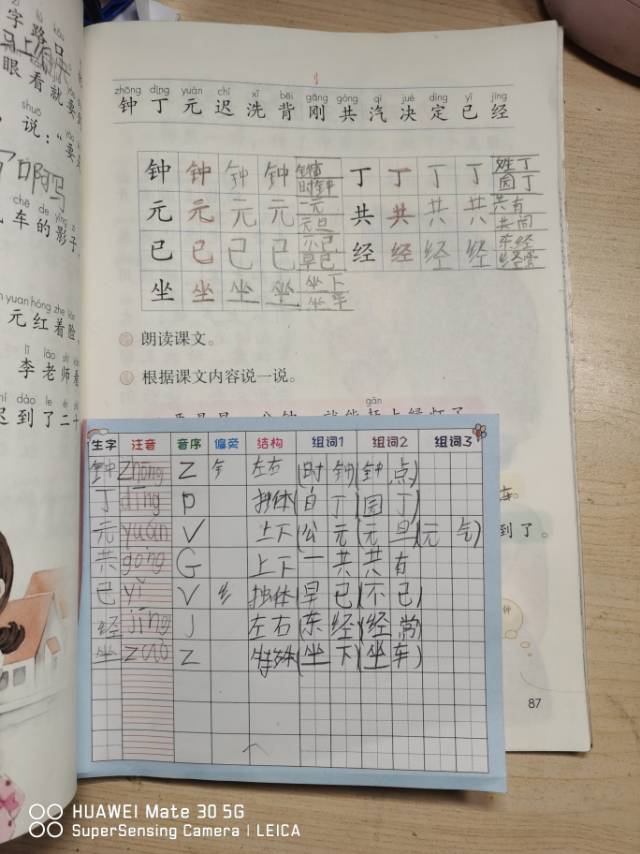 字路口
马上
眼看就要
shuō
说：“要
了啊吗
chē de yǐng zi
车的影子
yuan hóng zhe liǎn
元红着脸
lǐ lǎo shī
李老师
chí dào le èr
迟到了二
zhōng dīng yuán chí xǐ bēi gāng gòng qì jué dìng yǐ jīng
钟丁元迟洗背刚共汽决定已经
钟钟钟钟 时钟 丁丁丁丁 园丁
元元元元 一元 元旦 共共共共 共有 共同
已已已已 早已 经经经经 东经 经常
坐坐坐坐 坐下 坐车
朗读课文。
根据课文内容说一说。
gǎn
生字 注音 音序 偏旁 结构 组词1 组词2 组词3
钟 zhōng Z 钅 左右 (时钟)(钟点)
丁 dīng D 独体 (白丁)(园丁)
元 yuán Y 上下 (公元)(元旱)(元气)
共 gòng G 上下 一共 共有
已 yǐ 独体 (早已)(不已)
经 jīng J 纟 左右 (东经)(经常)
坐 zuò Z 特殊 (坐下)(坐车)
到了。
钟
87
HUAWEI Mate 30 5G
SuperSensing Camera | LEICA